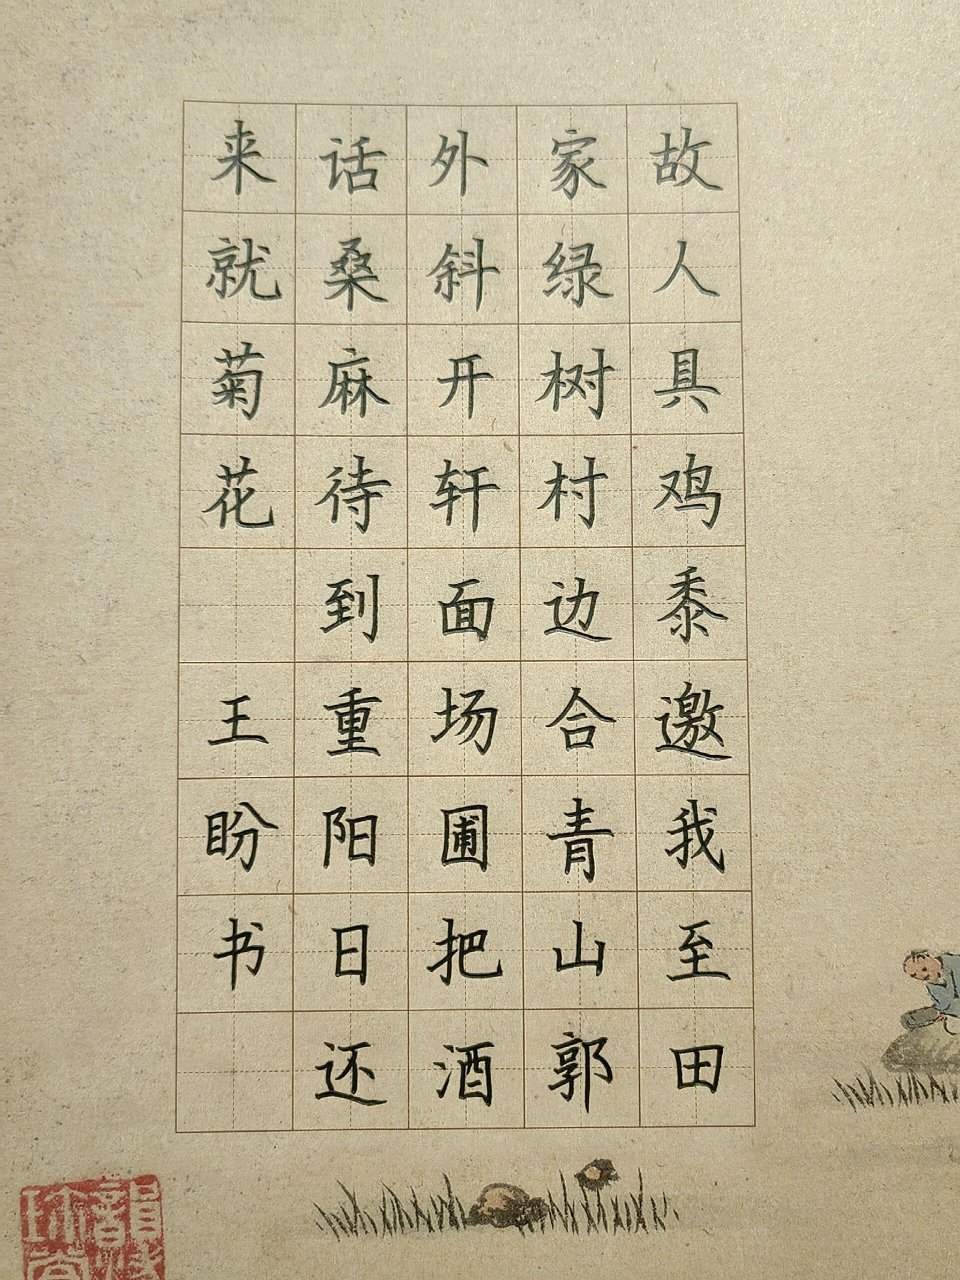 故人具鸡黍邀我至田
家绿树村边合青山郭
外斜开轩面场圃把酒
话桑麻待到重阳日还
来就菊花 王盼书